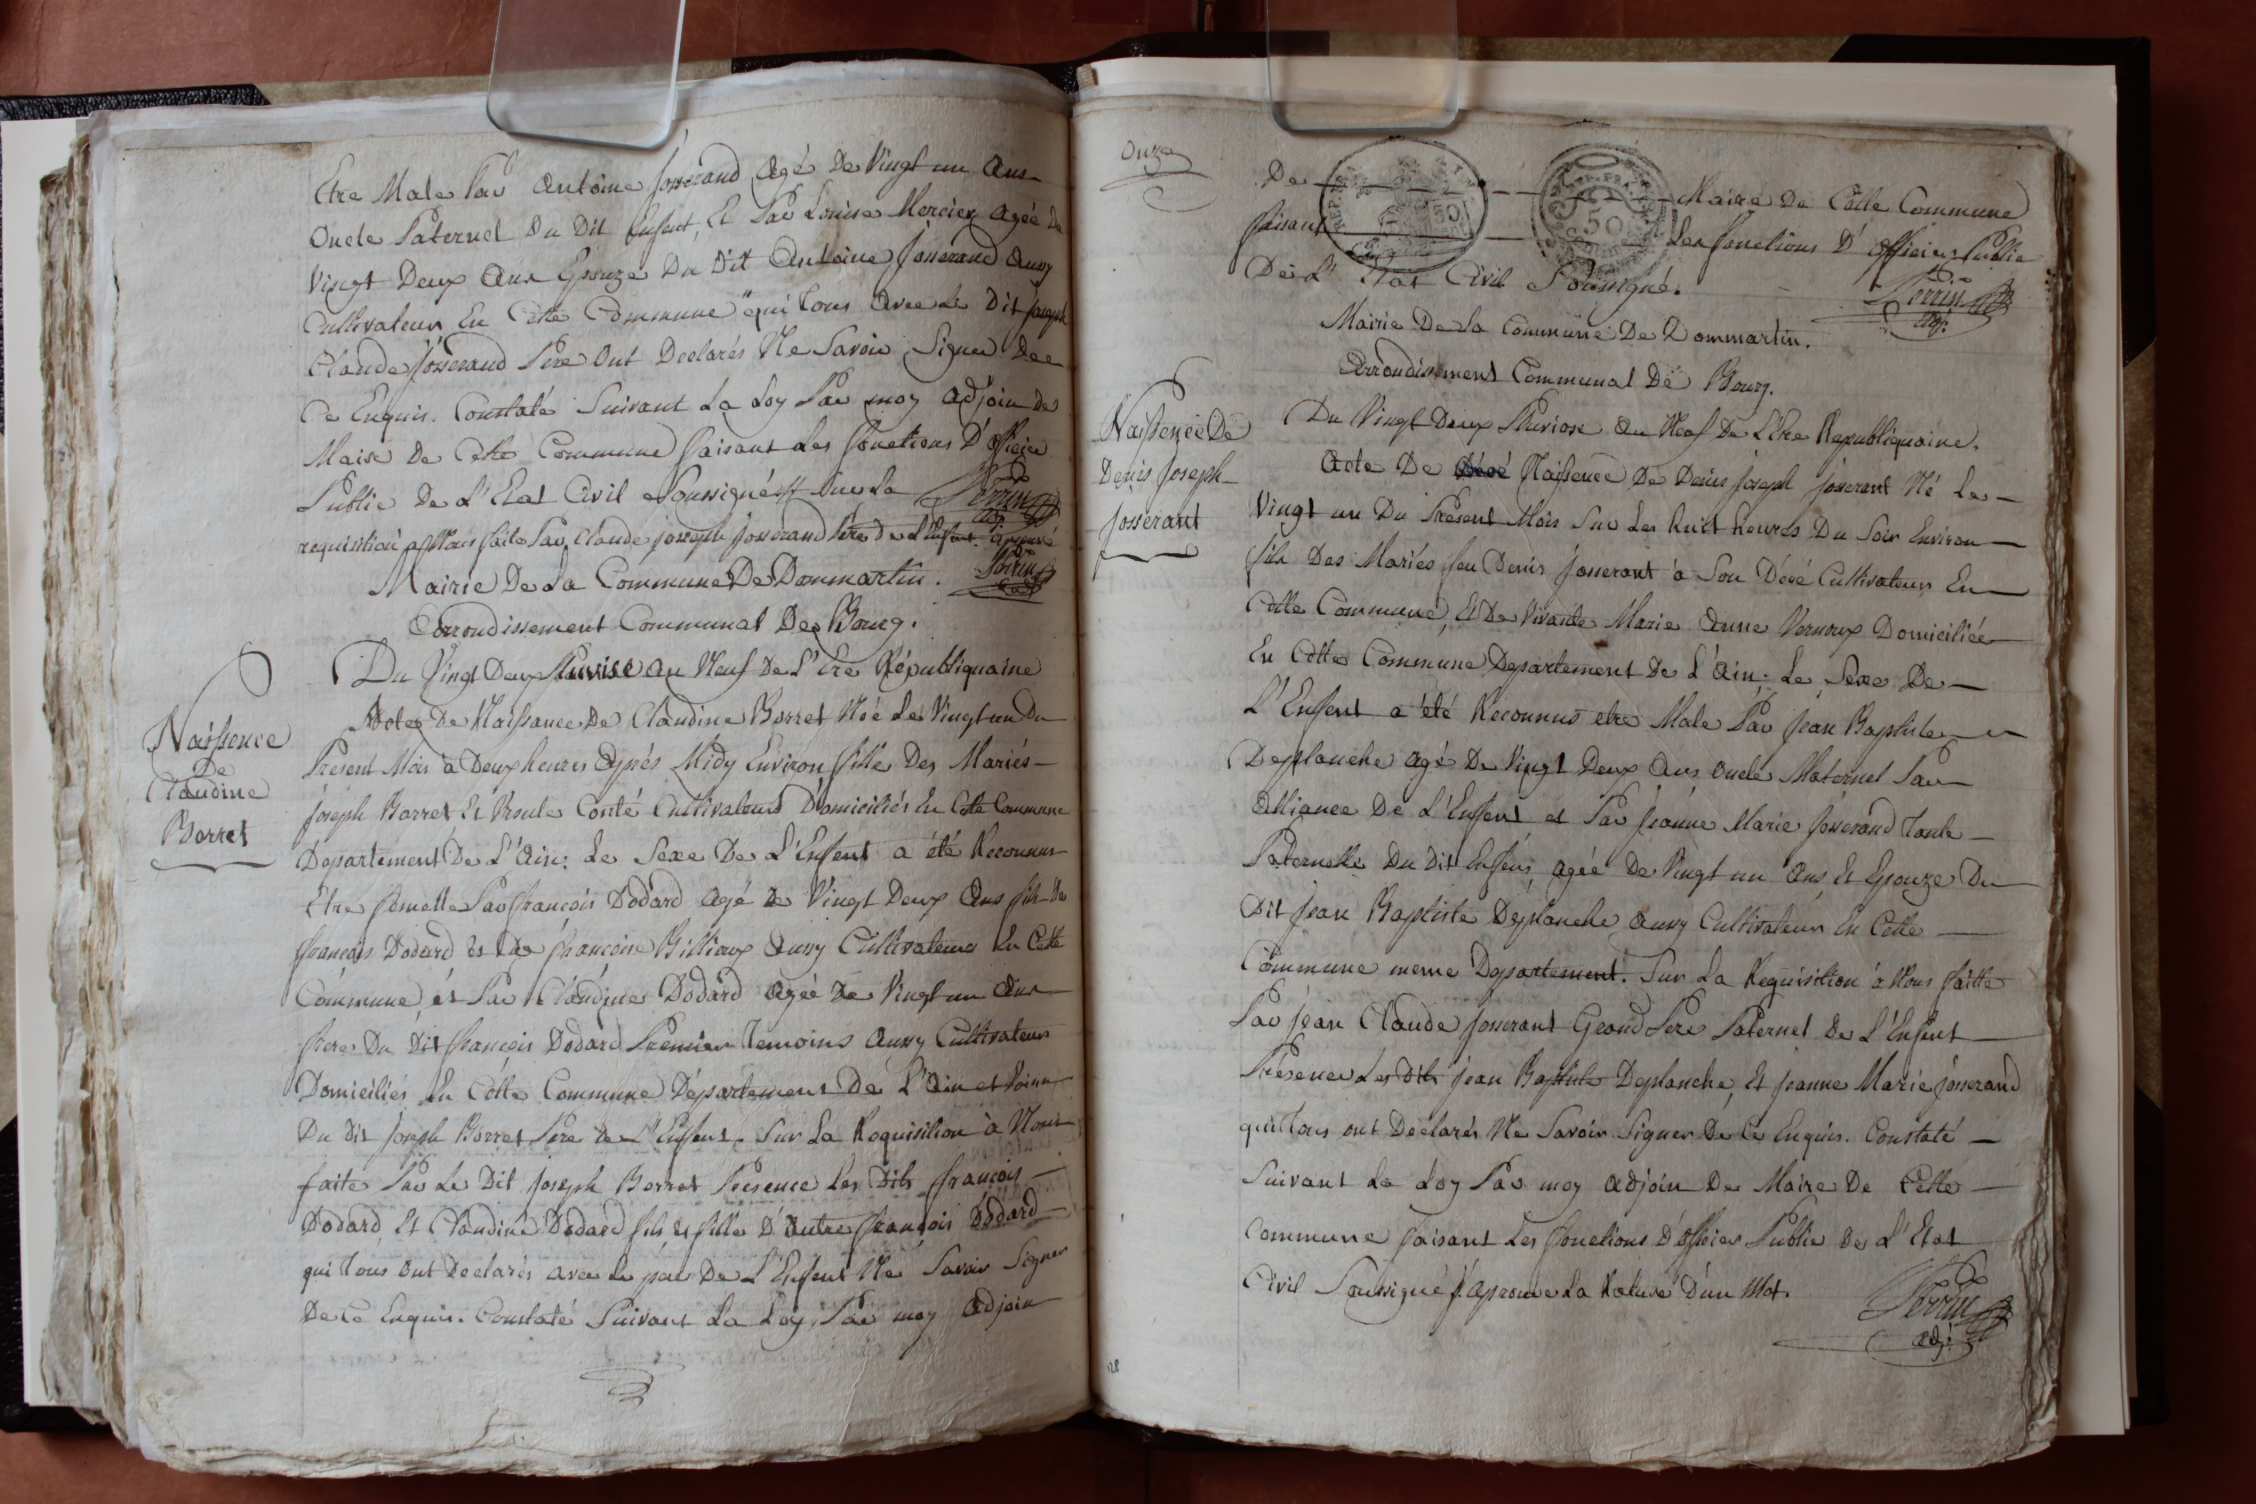 Etre Male Par Antoine Josserand Agé De Vingt un Ans
Oncle Paternel Du Dit Enfant, Et Par Louise Mercier Agée De
Vingt Deux Ans Epouze Du Dit Antoine Josserand Aussy
Cultivateur En Cette Commune qui tous Avec Le Dit Joseph
Claude Josserand Pere Ont Declarés Ne Savoir Signer De
Ce Enquis. Constaté Suivant La Loy Par moy Adjoin De
Maire De Cette Commune faisant Les fonctions D'Officier
Public De L'Etat Civil Soussigné Sur La
Perrin
adj.
requisition à Nous faite Par Claude joseph josserand Père De L'Enfant
Perrin
adj.
Mairie De La Commune De Dommartin.
Arrondissement Communal De Bourg.
Naissence
De
Claudine
Borret
Du Vingt Deux Pluviose An Neuf De L'Ere Républiquaine
Acte De Naissance De Claudine Borret Née Le Vingt un Du
Present Mois à Deux heures Aprés Midy Environ fille Des Mariés
Joseph Borret Et Ursule Conté Cultivateurs Domiciliés En Cette Commune
Departement De L'Ain: Le Sexe De L'Enfent a été Reconnus
Etre femelle Par françois Dodard Agé De Vingt Deux Ans fils De
françois Dodard et De françoise Billioux Aussy Cultivateurs En Cette
Commune, et Par Claudine Dodard Agée De Vingt un Ans
Du Dit françois Dodard Premier Temoins Aussy Cultivateurs
Domiciliés En Cette Commune Département De L'Ain et
Du Dit Joseph Borret Père De L'Enfent. Sur La Requisition à Nous
faite Par Le Dit Joseph Borret Présence Les Dits françois
Dodard Et Claudine Dodard fils et fille D'Autre françois Dodard
qui tous Ont Declarés avec Le pere De L'Enfent Ne Savoir Signer
De Ce Enquis. Constaté Suivant La Loy, Par moy Adjoin
Onze
De Maire De Cette Commune
faisant Les fonctions D'Officier Public
De L'Etat Civil Soussigné.
Perrin
adj.
50
50
Mairie De La Commune De Dommartin.
Arrondissement Communal De Bourg.
Naissence De
Denis Joseph
Josserant
Du Vingt Deux Pluviose An Neuf De L'Ere Republiquaine.
Acte De Naissence De Denis Joseph Josserant Né Le
Vingt un Du Présent Mois Sur Les huitt heures Du Soir Environ
fils Des Mariés feu Denis Josserant à Son Décé Cultivateur En
Cette Commune, Et De Vivante Marie Anne Vernoux Domiciliée
En Cette Commune Departement De L'Ain: Le Sexe De
L'Enfent a été Reconnus etre Male Par Jean Baptiste
Deplanche Agé De Vingt Deux Ans Oncle Maternel Par
Alliance De L'Enfent et Par Jeanne Marie Josserand Tante
Paternelle Du Dit Enfent, Agée De Vingt un Ans Et Epouze Du
Dit Jean Baptiste Deplanche Aussy Cultivateur En Cette
Commune meme Departement. Sur La Requisition à Nous faitte
Par Jean Claude Josserant Grand Pere Paternel De L'Enfent
Présence Les Dits Jean Baptiste Deplanche, Et Jeanne Marie Josserand
qui tous ont Declarés Ne Savoir Signer De Ce Enquis. Constaté
Suivant La Loy Par moy Adjoin De Maire De Cette
Commune faisant Les fonctions D'Officier Public De L'Etat
Civil Soussigné J'aprouve La Rature D'un Mot.
Perrin
adj.